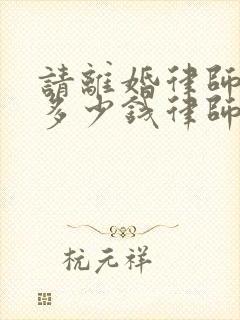 請離婚律師
多少錢律師
杭元祥